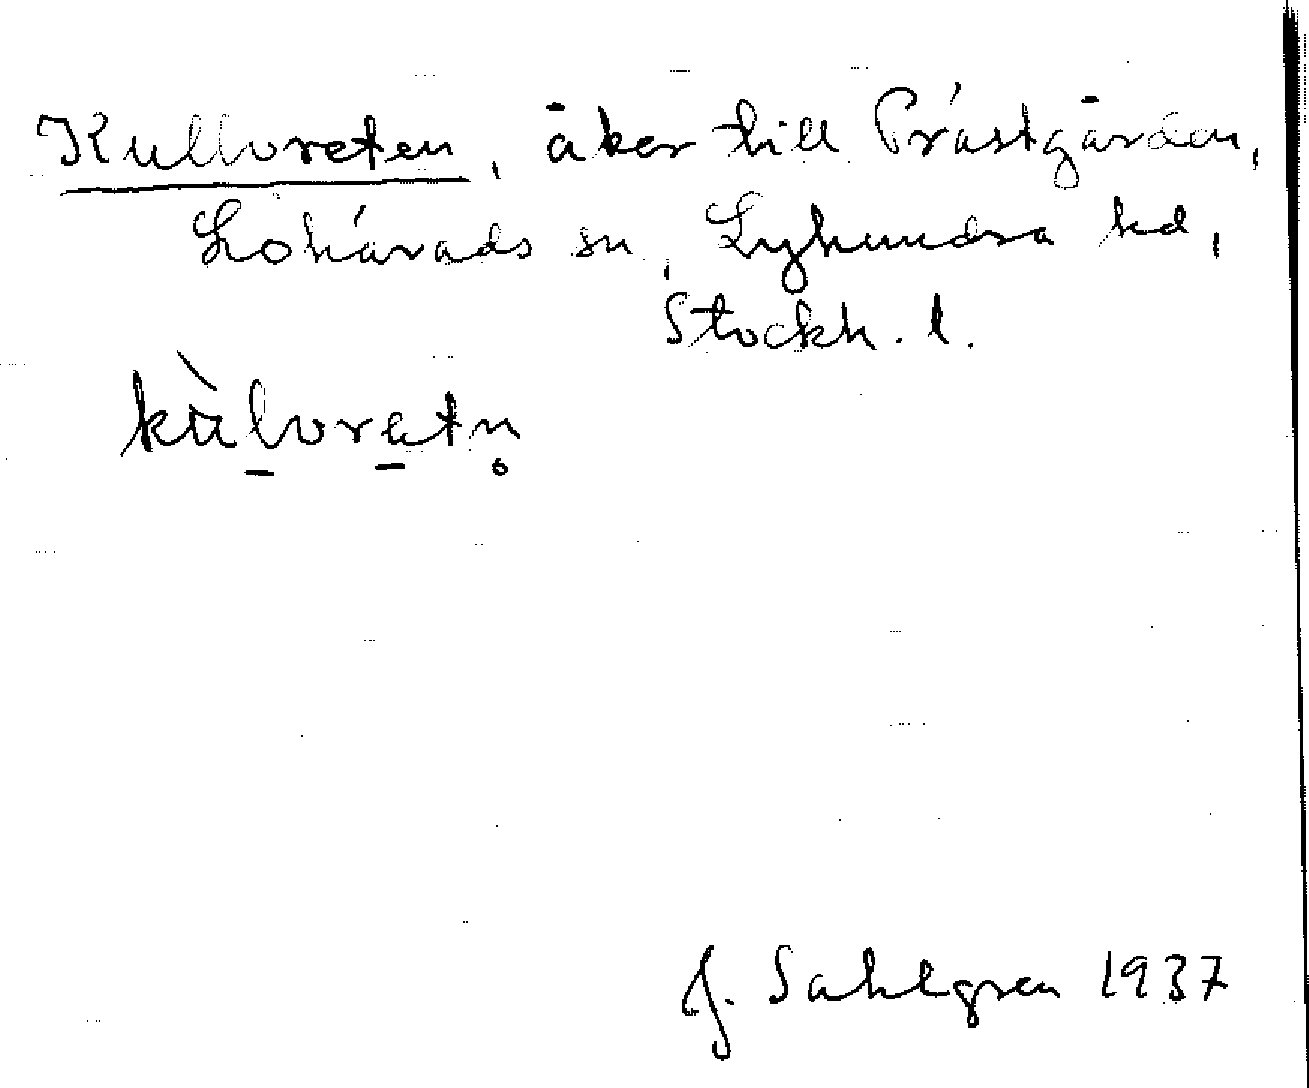 Kullvreten, åker till Prästgården,
Lohärads sn, Lyhundra hd,
Stockh. l.
kùlvretn̥
J. Sahlgren 1937